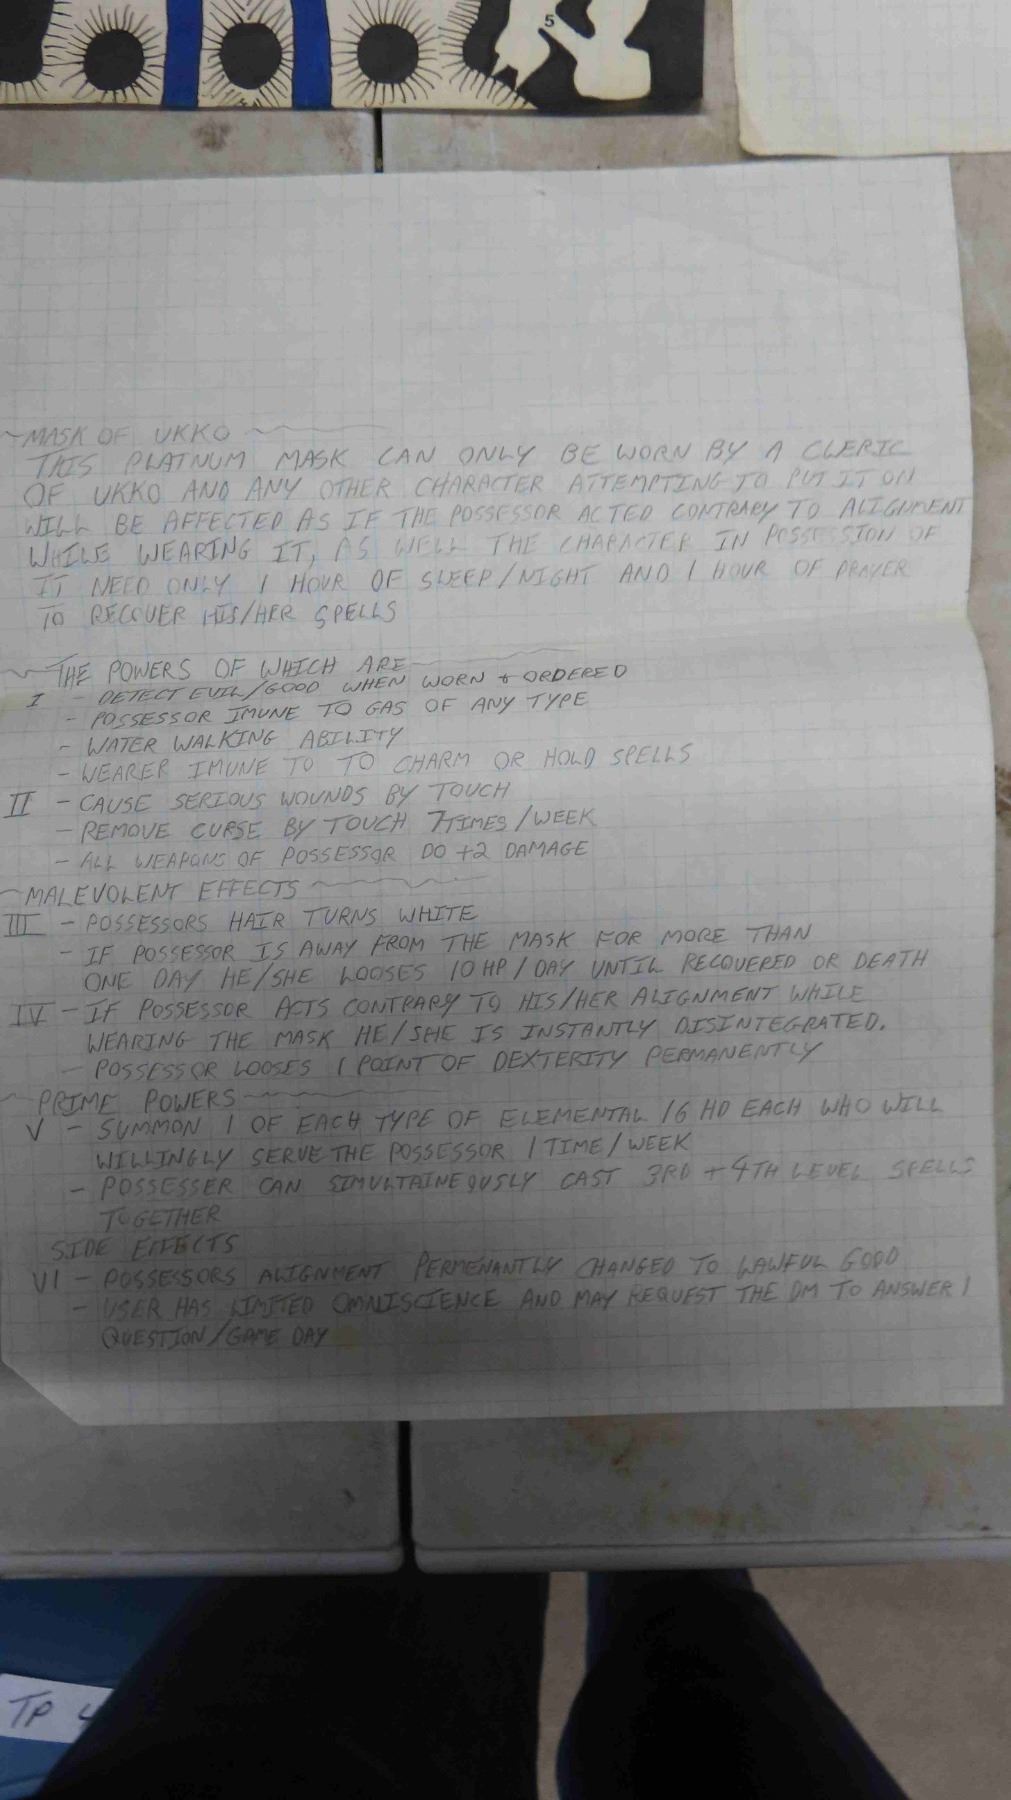 5
~MASK OF UKKO~
THIS PLATNUM MASK CAN ONLY BE WORN BY A CLERIC
OF UKKO AND ANY OTHER CHARACTER ATTEMPTING TO PUT IT ON
WILL BE AFFECTED AS IF THE POSSESSOR ACTED CONTRARY TO ALIGNMENT
WHILE WEARING IT, AS WELL THE CHARACTER IN POSSESSION OF
IT NEED ONLY 1 HOUR OF SLEEP/NIGHT AND 1 HOUR OF PRAYER
TO RECOVER HIS/HER SPELLS
~THE POWERS OF WHICH ARE~
I - DETECT EVIL/GOOD WHEN WORN + ORDERED
- POSSESSOR IMUNE TO GAS OF ANY TYPE
- WATER WALKING ABILITY
- WEARER IMUNE TO TO CHARM OR HOLD SPELLS
II - CAUSE SERIOUS WOUNDS BY TOUCH
- REMOVE CURSE BY TOUCH 7TIMES/WEEK
- ALL WEAPONS OF POSSESSOR DO +2 DAMAGE
~MALEVOLENT EFFECTS~
III - POSSESSORS HAIR TURNS WHITE
- IF POSSESSOR IS AWAY FROM THE MASK FOR MORE THAN
ONE DAY HE/SHE LOOSES 10 HP/DAY UNTIL RECOVERED OR DEATH
IV - IF POSSESSOR ACTS CONTRARY TO HIS/HER ALIGNMENT WHILE
WEARING THE MASK HE/SHE IS INSTANTLY DISINTEGRATED.
- POSSESSOR LOOSES 1 POINT OF DEXTERITY PERMANENTLY
~PRIME POWERS~
V - SUMMON 1 OF EACH TYPE OF ELEMENTAL 16 HD EACH WHO WILL
WILLINGLY SERVE THE POSSESSOR 1 TIME/WEEK
- POSSESSER CAN SIMULTAINEOUSLY CAST 3RD + 4TH LEVEL SPELLS
TOGETHER
SIDE EFFECTS
VI - POSSESSORS ALIGNMENT PERMENANTLY CHANGED TO LAWFUL GOOD
- USER HAS LIMITED OMNISCIENCE AND MAY REQUEST THE DM TO ANSWER 1
QUESTION/GAME DAY
TP 4